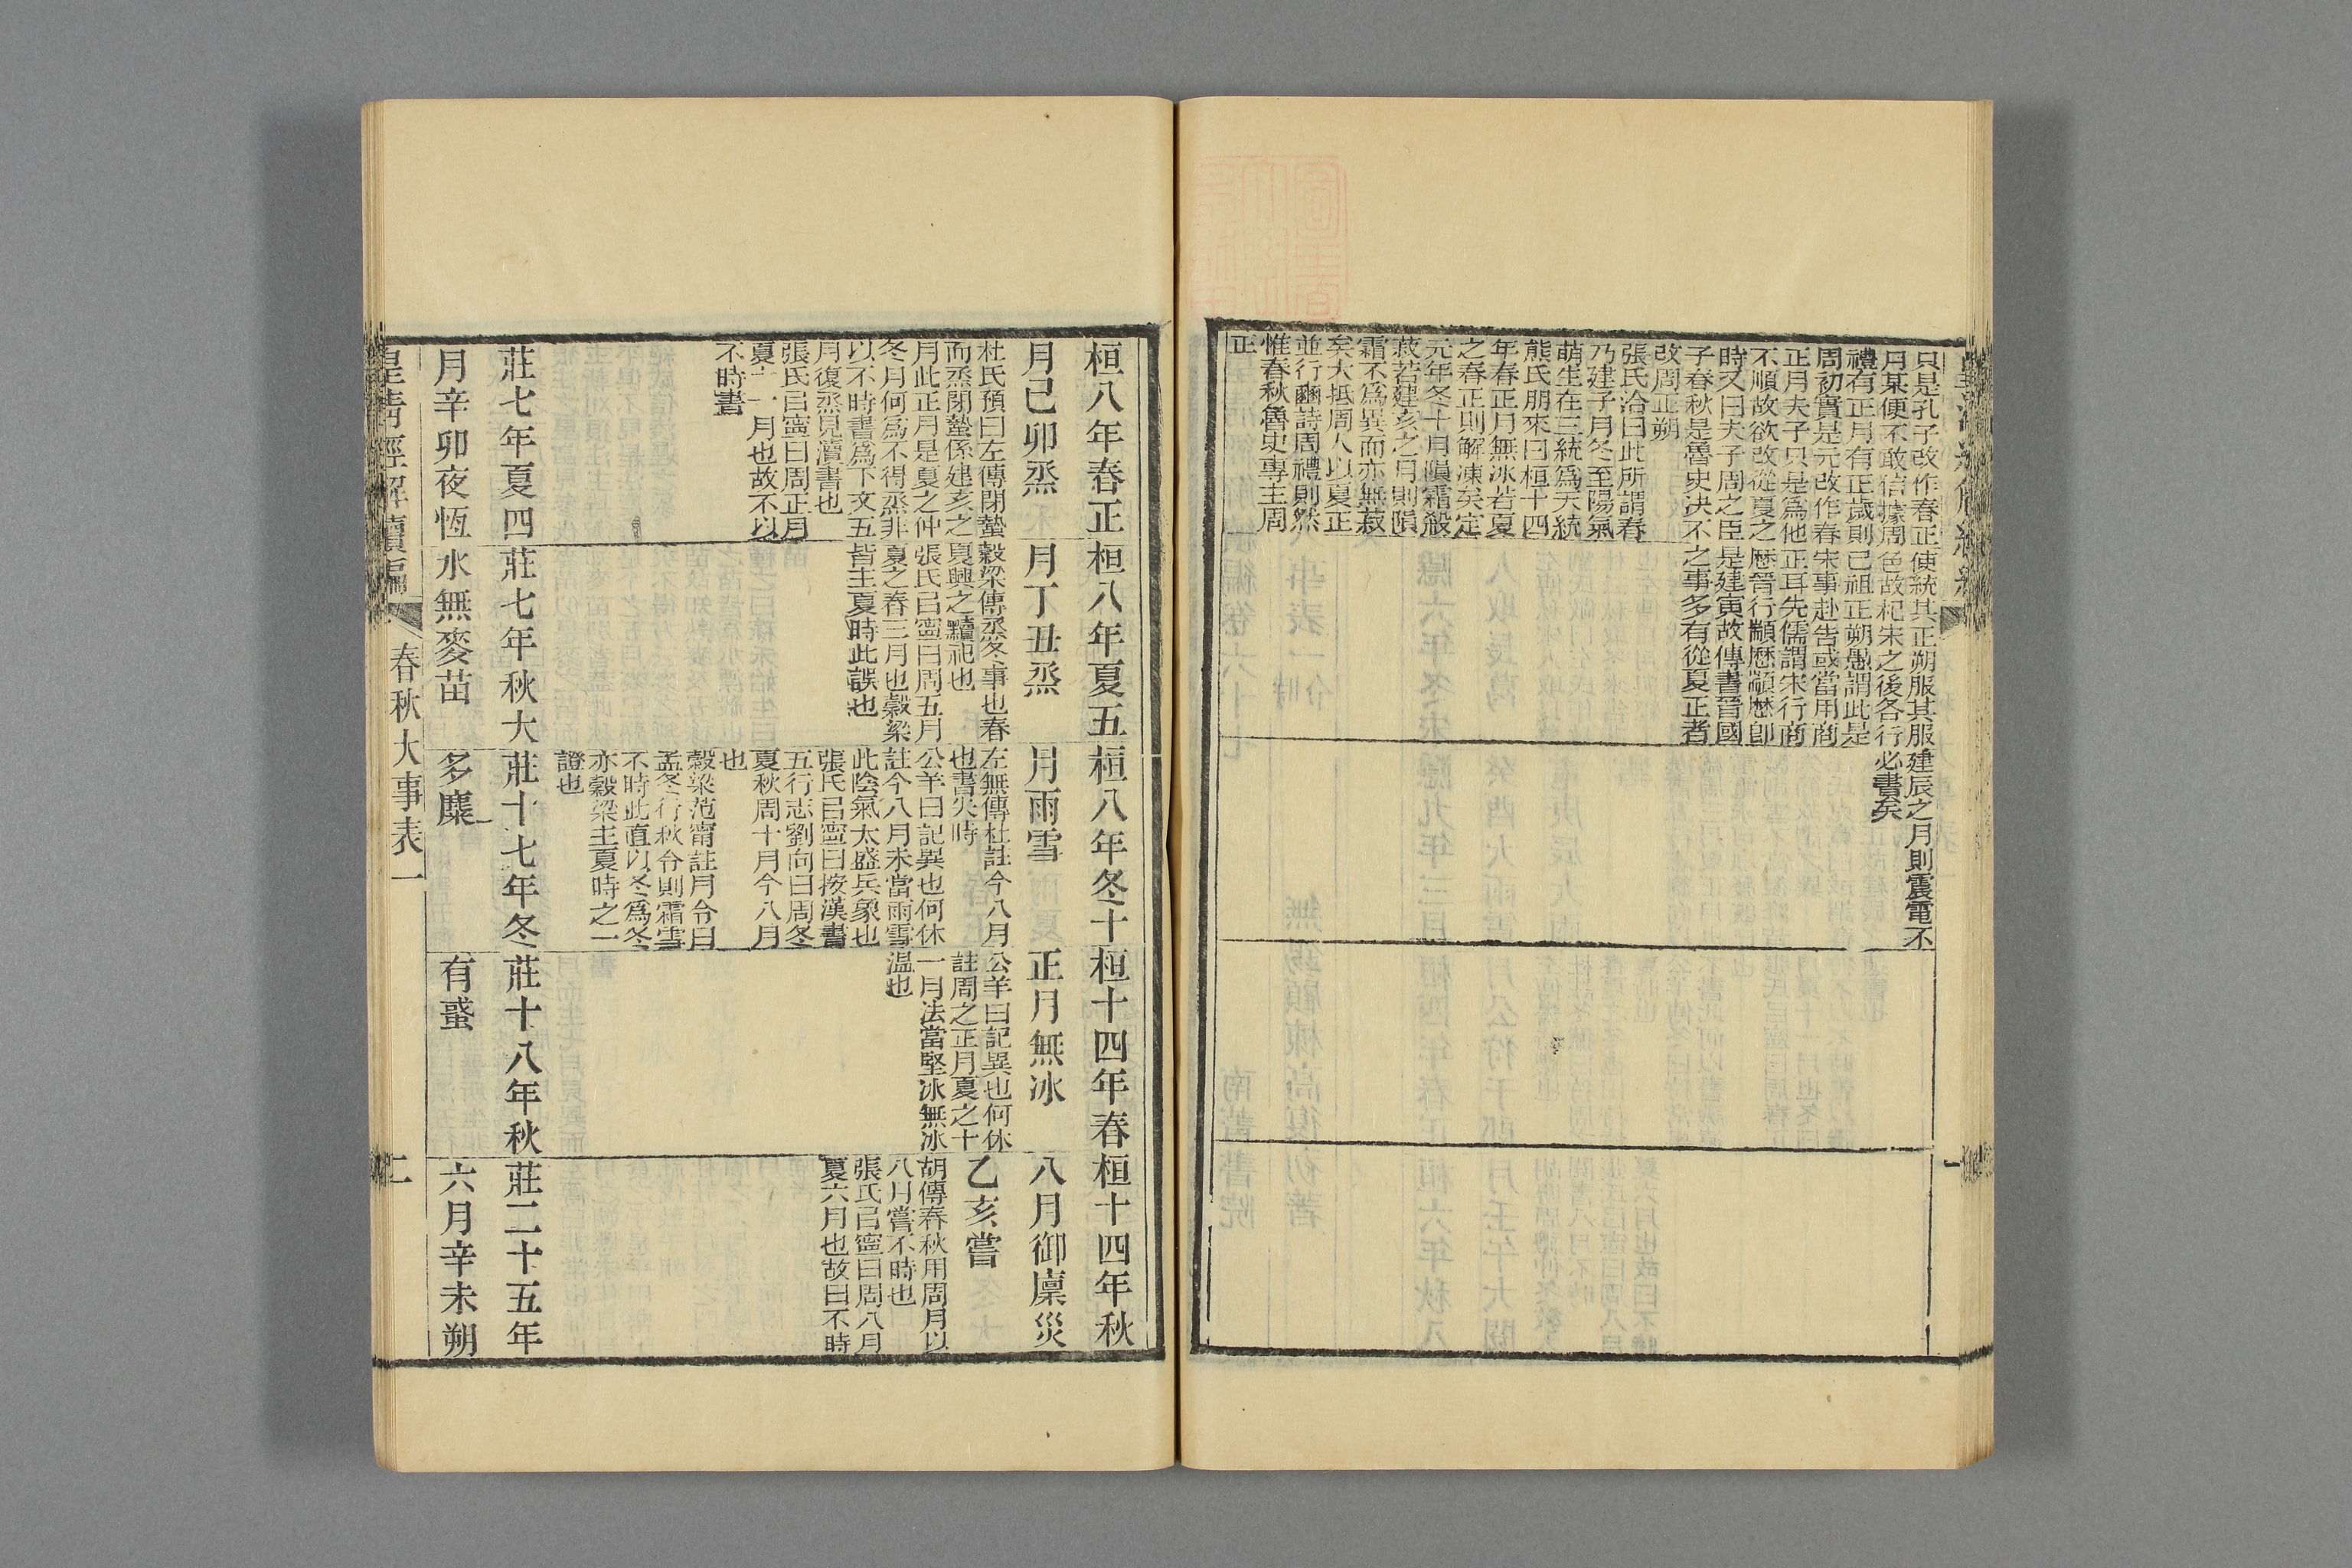 只是孔子改作春正使
月某便不敢信據周
禮有正月有正歲則
周初實是元改作春
正月夫子只是爲他
不順故欲改從夏之
時又曰夫子周之臣
子春秋是魯史决不
改周正朔
張氏洽曰此所謂春
乃建子月冬至陽氣
萌生在三統爲天統
熊氏朋來曰桓十四
年春正月無冰若夏
之春正則解凍矣定
元年冬十月隕霜殺
菽若建亥之月則隕
霜不爲異而亦無菽
矣大抵周人以夏正
並行豳詩周禮則然
惟春秋魯史專主周
正
統其正朔服其服
色故杞宋之後各行
已祖正朔愚謂此是
宋事赴告或當用商
正耳先儒謂宋行商
歷晉行顓歷顓歷卽
是建寅故傳書晉國
之事多有從夏正者
建辰之月則震電不
必書矣
桓八年春正
月己卯烝
杜氏預曰左傳閉蟄
而烝閉蟄係建亥之
月此正月是夏之仲
冬月何爲不得烝非
以不時書爲下文五
月復烝見瀆書也
張氏㠯寧曰周正月
夏十一月也故不以
不時書
桓八年夏五
月丁丑烝
穀梁傳烝冬事也春
夏興之黷祀也
張氏㠯寧曰周五月
夏之春三月也穀梁
皆主夏時此誤也
桓八年冬十
月雨雪
左無傳杜註今八月
也書失時
公羊曰記異也何休
註今八月未當雨雪
此陰氣太盛兵象也
張氏㠯寧曰按漢書
五行志劉向曰周冬
夏秋周十月今八月
也
穀梁范甯註月令曰
孟冬行秋令則霜雪
不時此直以冬爲冬
亦穀梁主夏時之一
證也
桓十四年春
正月無冰
公羊曰記異也何休
註周之正月夏之十
一月法當堅冰無冰
温也
桓十四年秋
八月御廩災
乙亥嘗
胡傳春秋用周月以
八月嘗不時也
張氏㠯寧曰周八月
夏六月也故曰不時
莊七年夏四
月辛卯夜恆
莊七年秋大
水無麥苗
莊十七年冬
多麋
莊十八年秋
有蜮
莊二十五年
六月辛未朔
皇清經解續編
春秋大事表一
二